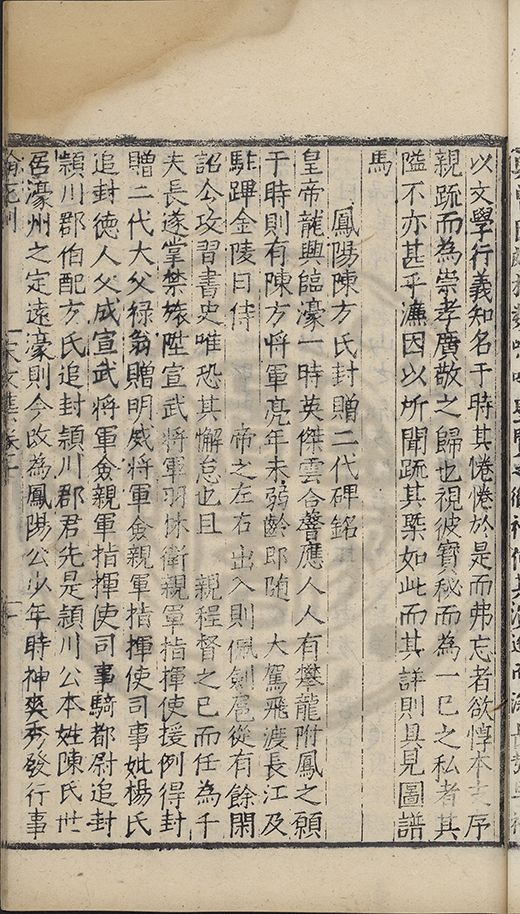 以文學行義知名于時其惓惓於是而弗忘者欲惇本支序
親疏而為崇孝廣敬之歸也視彼寶秘而為一己之私者其
隘不亦甚乎濂因以所聞疏其槩如此而其詳則具見圖譜
馬
鳳陽陳方氏封贈二代碑銘
皇帝龍興臨濠一時英傑雲合響應人人有攀龍附鳳之願
于時則有陳方將軍亮年未弱齡即随 大駕飛渡長江及
駐蹕金陵日侍 帝之左右出入則佩劍扈從有餘閑
詔公攻習書史唯恐其懈怠也且 親程督之已而任為千
夫長遂掌禁旅陞宣武將軍羽林衛親軍指揮使援例得封
贈二代大父禄翁贈明威將軍僉親軍指揮使司事妣楊氏
追封徳人父成宣武將軍僉親軍指揮使司事騎都尉追封
頴川郡伯配方氏追封頴川郡君先是頴川公本姓陳氏世
居濠州之定遠濠則今改為鳳陽公少年時神爽秀發行事